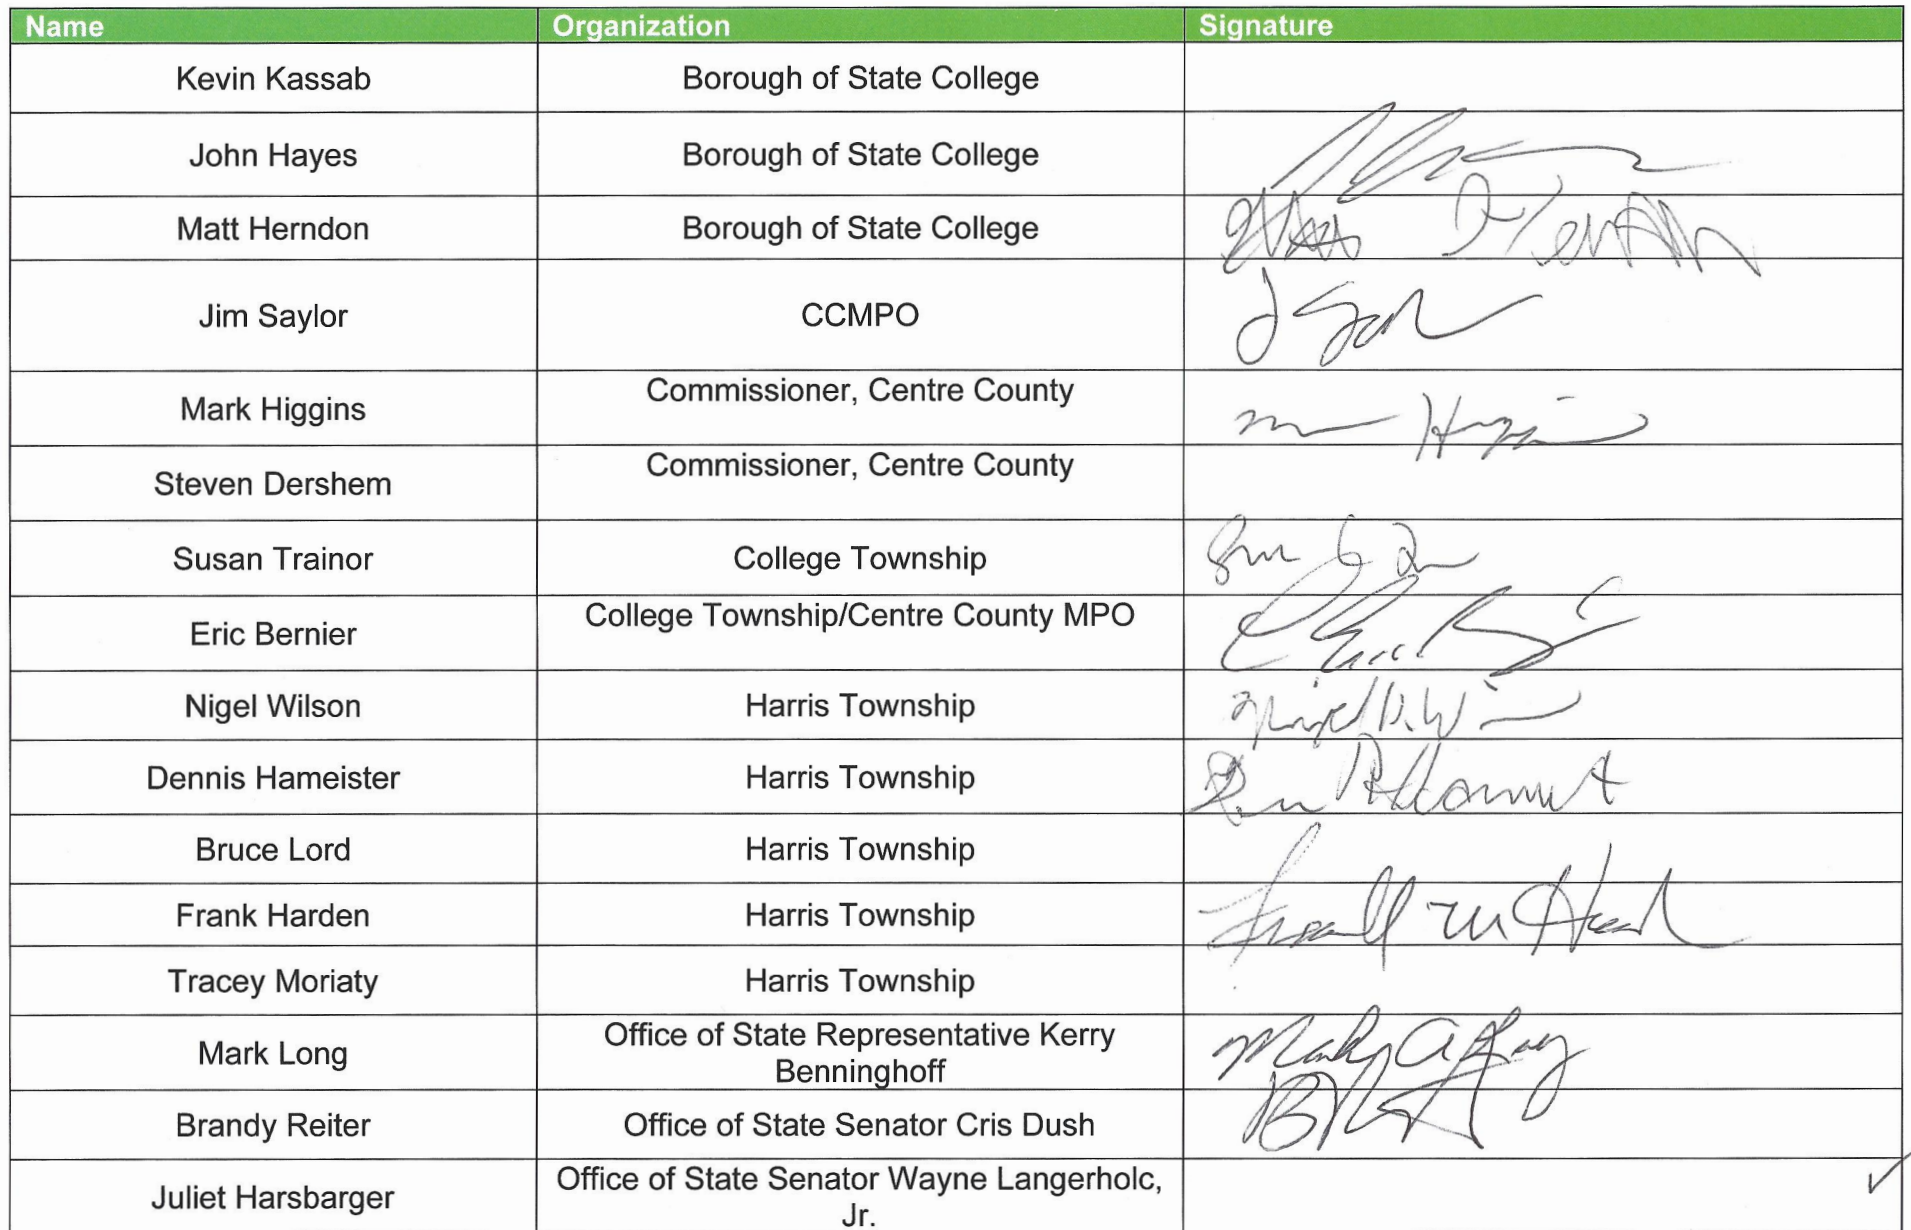 Name Organization Signature
Kevin Kassab Borough of State College
John Hayes Borough of State College
Matt Herndon Borough of State College
Jim Saylor CCMPO
Mark Higgins Commissioner, Centre County
Steven Dershem Commissioner, Centre County
Susan Trainor College Township
Eric Bernier College Township/Centre County MPO
Nigel Wilson Harris Township
Dennis Hameister Harris Township
Bruce Lord Harris Township
Frank Harden Harris Township
Tracey Moriaty Harris Township
Mark Long Office of State Representative Kerry
Benninghoff
Brandy Reiter Office of State Senator Cris Dush
Juliet Harsbarger Office of State Senator Wayne Langerholc,
Jr.